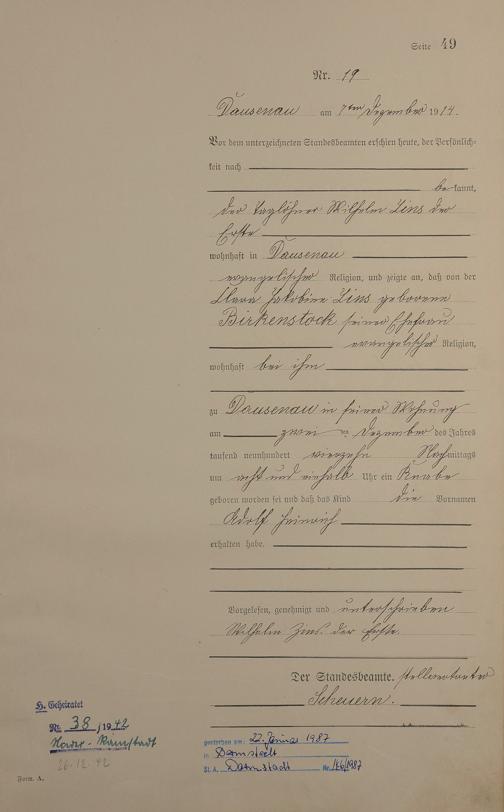 Seite 49
Nr. 19
Dausenau am 7ten Dezember 1914.
Vor dem unterzeichneten Standesbeamten erschien heute, der Persönlich-
keit nach
be kannt,
der Taglöhner Wilhelm Zins der
Erste
wohnhaft in Dausenau
evangelischer Religion, und zeigte an, daß von der
Clara Jakobine Zins geborene
Birkenstock seiner Ehefrau
evangelischer Religion,
wohnhaft bei ihm
zu Dausenau in seiner Wohnung
am zwei Dezember des Jahres
tausend neunhundert vierzehn Nachmittags
um acht und einhalb Uhr ein Knabe
geboren worden sei und daß das Kind die Vornamen
Adolf Heinrich
erhalten habe.
Vorgelesen, genehmigt und unterschrieben
Wilhelm Zins der Erste.
Der Standesbeamte. stellvertreter
Scheuern.
H. Geheiratet
Nr. 38 / 1942
Nieder-Ramstadt
26.12.42
gestorben am: 22. Juni 1987
in Darmstadt
St. A. Darmstadt Nr. /1987
Form. A.